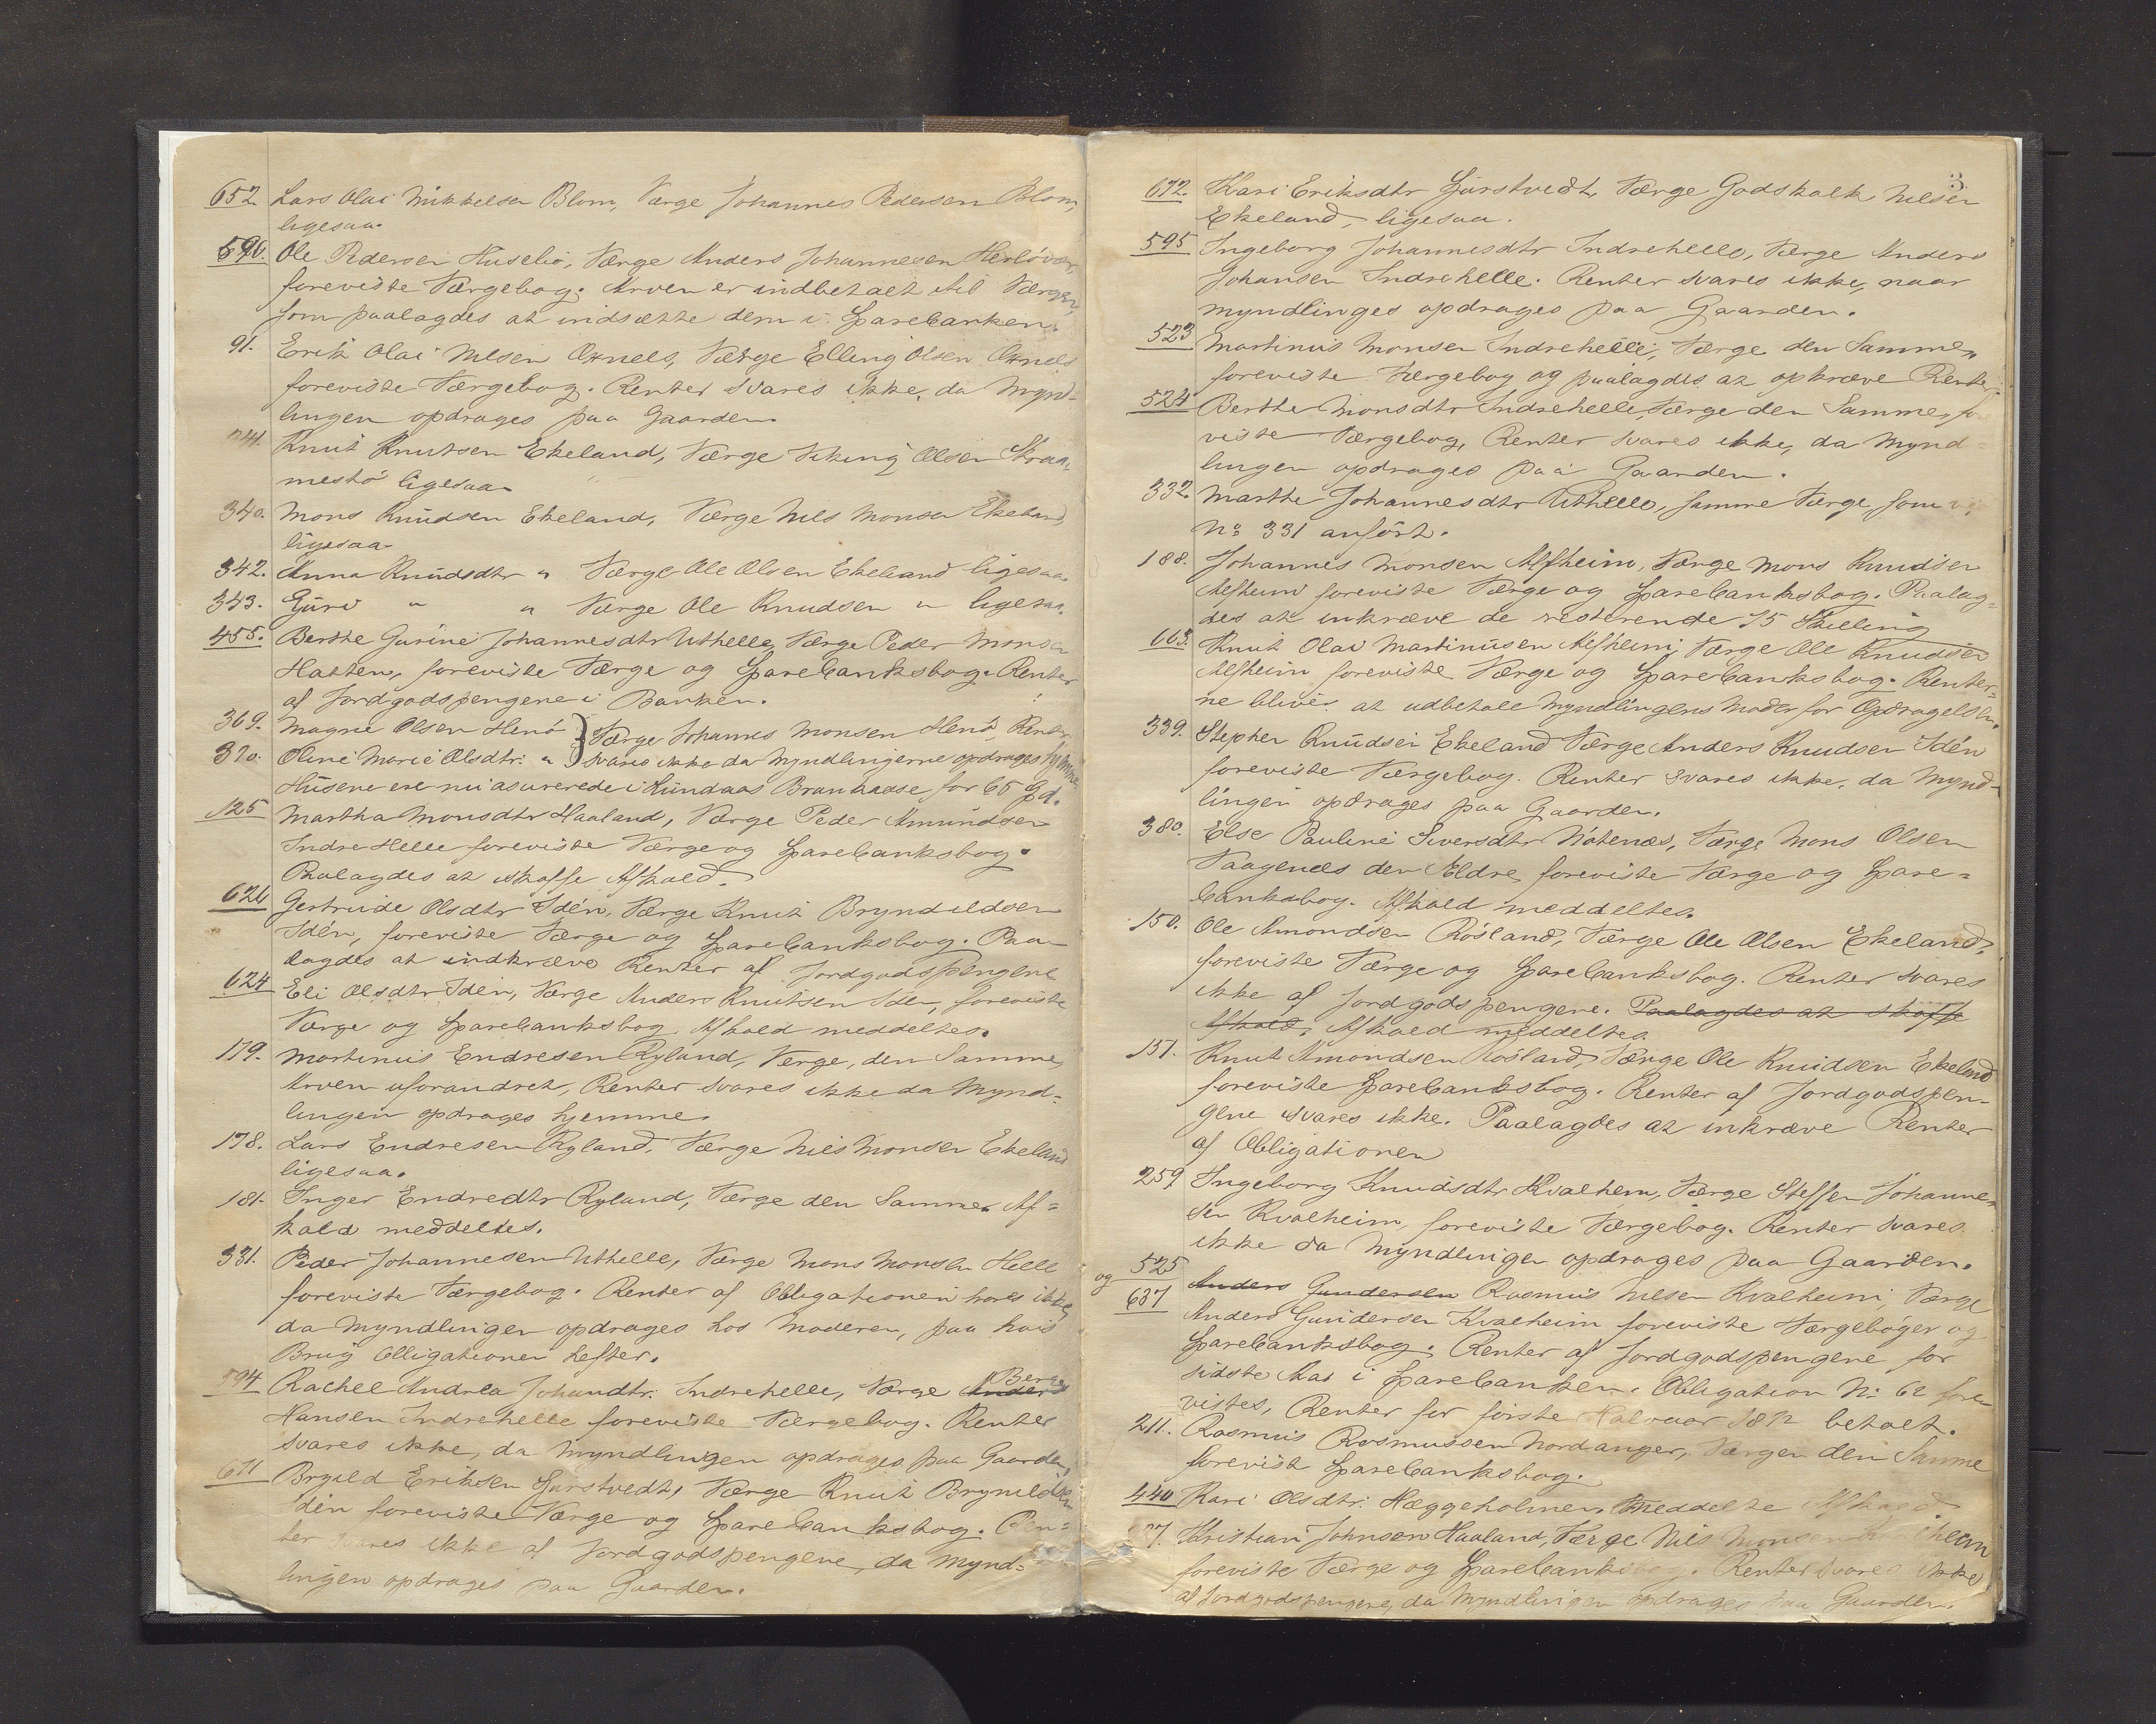 652 Lars Olai Mikkelsen Blom, Værge Johannes Pedersen Blom,
ligesaa.
596. Ole Pedersen Husebø, Værge Anders Johannesen Herløvær,
foreviste Værgebog. Arven er indbetalt til Værgen,
som paalagdes at indsætte dem i Sparebanken.
91. Erik Olai Nilsen Øknels, Værge Elling Olsen Øknels
foreviste Værgebog. Renter svares ikke, da Mynd-
lingen opdrages paa Gaarden.
341. Knut Knutsen Ekeland, Værge Viking Olsen Straa-
mestø ligesaa
340. Mons Knudsen Ekeland, Værge Nils Monsen Ekeland
ligesaa
342. Anna Knudsdtr " Værge Ole Olsen Ekeland ligesaa.
343. Guro " " Værge Ole Knudsen " ligesaa.
455. Berthe Gurine Johannesdtr Uthelle, Værge Peder Monsen
Hatten, foreviste Værge og Sparebanksbog. Renter
af Jordgodspengene i Banken.
369. Magne Olsen Henø } Værge Johannes Monsen Henø Renter
370. Oline Marie Olsdtr. " } svares ikke da Myndlingerne opdrages hjemme
Husene ere nu asurerede i Kundaas Brankadse for 65 Spd.
125 Martha Monsdtr Haaland, Værge Peder Amundsen
Indre Helle foreviste Værge og Sparebanksbog.
Paalagdes at skaffe Afkald.
626 Gertrude Olsdtr Idén, Værge Knut Bryndildsen
Idén, foreviste Værge og Sparebanksbog. Paa-
lagdes at indkræve Renter af Jordgodspengene
624 Eli Olsdtr Idén, Værge Anders Knutsen Iden, foreviste
Værge og Sparebanksbog. Afkald meddeltes.
179. Martinus Endresen Ryland, Værge, den Samme,
Arven uforandret, Renter svares ikke da Mynd-
lingen opdrages hjemme.
178. Lars Endresen Ryland, Værge Nils Monsen Ekeland
ligesaa.
181. Inger Endredtr Ryland, Værge den Samme. Af-
kald meddeltes.
331. Peder Johannesen Uthelle, Værge Mons Monsen Helle
foreviste Værgebog. Renter af Obligationen svares ikke,
da Myndlingen opdrages hos Moderen, paa hvis
Brug Obligationen hefter.
594 Rachel Andrea Johandtr. Indrehelle, Værge Anders Berge
Hansen Indrehelle foreviste Værgebog. Renter
svares ikke, da Myndlingen opdrages paa Gaarden,
671 Brynild Eriksen Sjurstvedt, Værge Knut Brynildsen
Idén foreviste Værge og Sparebanksbog. Ren-
ter svares ikke af Jordgodspengene, da Mynd-
lingen opdrages paa Gaarden.
3
672. Kari Eriksdtr Sjurstvedt, Værge Godskalk Nilsen
Ekeland, ligesaa.
595 Ingeborg Johannesdtr Indrehelle, Værge Anders
Johansen Indrehelle. Renter svares ikke, naar
Myndlinges opdrages paa Gaarden.
523 Martinus Monsen Indrehelle, Værge den Samme,
foreviste Værgebog og paalagdes at opkræve Renter
524 Berthe Monsdtr Indrehelle Værge den Samme, fore
viste Værgebog, Renter svares ikke, da Mynd-
lingen opdrages paa Gaarden.
332. Marthe Johannesdtr Uthelle, samme Værge, som
No 331 anført.
188. Johannes Monsen Alfheim, Værge Mons Knudsen
Alfheim foreviste Værge og Sparebanksbog. Paalag-
des at inkræve de resterende 75 Skilling
663. Knut Olai Martinusen Alfheim, Værge Ole Knudsen
Alfheim foreviste Værge og Sparebanksbog. Renter-
ne blive at udbetale Myndlingens Moder for Opdragelsen.
339. Stephen Knudsen Ekeland Værge Anders Knudsen Idén
foreviste Værgebog. Renter svares ikke, da Mynd-
lingen opdrages paa Gaarden.
380. Else Pauline Siversdtr Nøtenæs, Værge Mons Olsen
Vaagenæs den Ældre foreviste Værge og Spare-
banksbog. Afkald meddeltes.
150. Ole Amondsen Røsland, Værge Ole Olsen Ekeland,
foreviste Værge og Sparebanksbog. Renter svares
ikke af Jordgodspengene. Paalagdes at skaffe
Afkald. Afkald meddeltes.
151. Knut Amondsen Røsland, Værge Ole Knudsen Ekeland
foreviste Sparebanksbog. Renter af Jordgodspen-
gene svares ikke. Paalagdes at inkræve Renter
af Obligationen
259 Ingeborg Knudsdtr Kvalheim, Værge Steffen Johanne-
sen Kvalheim, foreviste Værgebog. Renter svares
ikke da Myndlingen opdrages paa Gaarden.
525 Anders Gundersen Rasmus Nilsen Kvalheim, Værge
og 637 Anders Gundersen Kvalheim foreviste Værgebøger og
Sparebanksbog. Renter af Jordgodspengene for
sidste Aar i Sparebanken. Obligation No 62 fore-
vistes, Renter for første Halvaar 1872 betalt.
211. Rasmus Rasmussen Nordanger, Værgen den Samme
forevist Sparebanksbog.
440 Kari Olsdtr. Hæggeholmen meddelte Afkald
Kristian Johnsen Haaland, Værge Nils Monsen
foreviste Værge og Sparebanksbog. Renter svares ikke
af Jordgodspengene, da Myndlingen opdrages paa Gaarden.